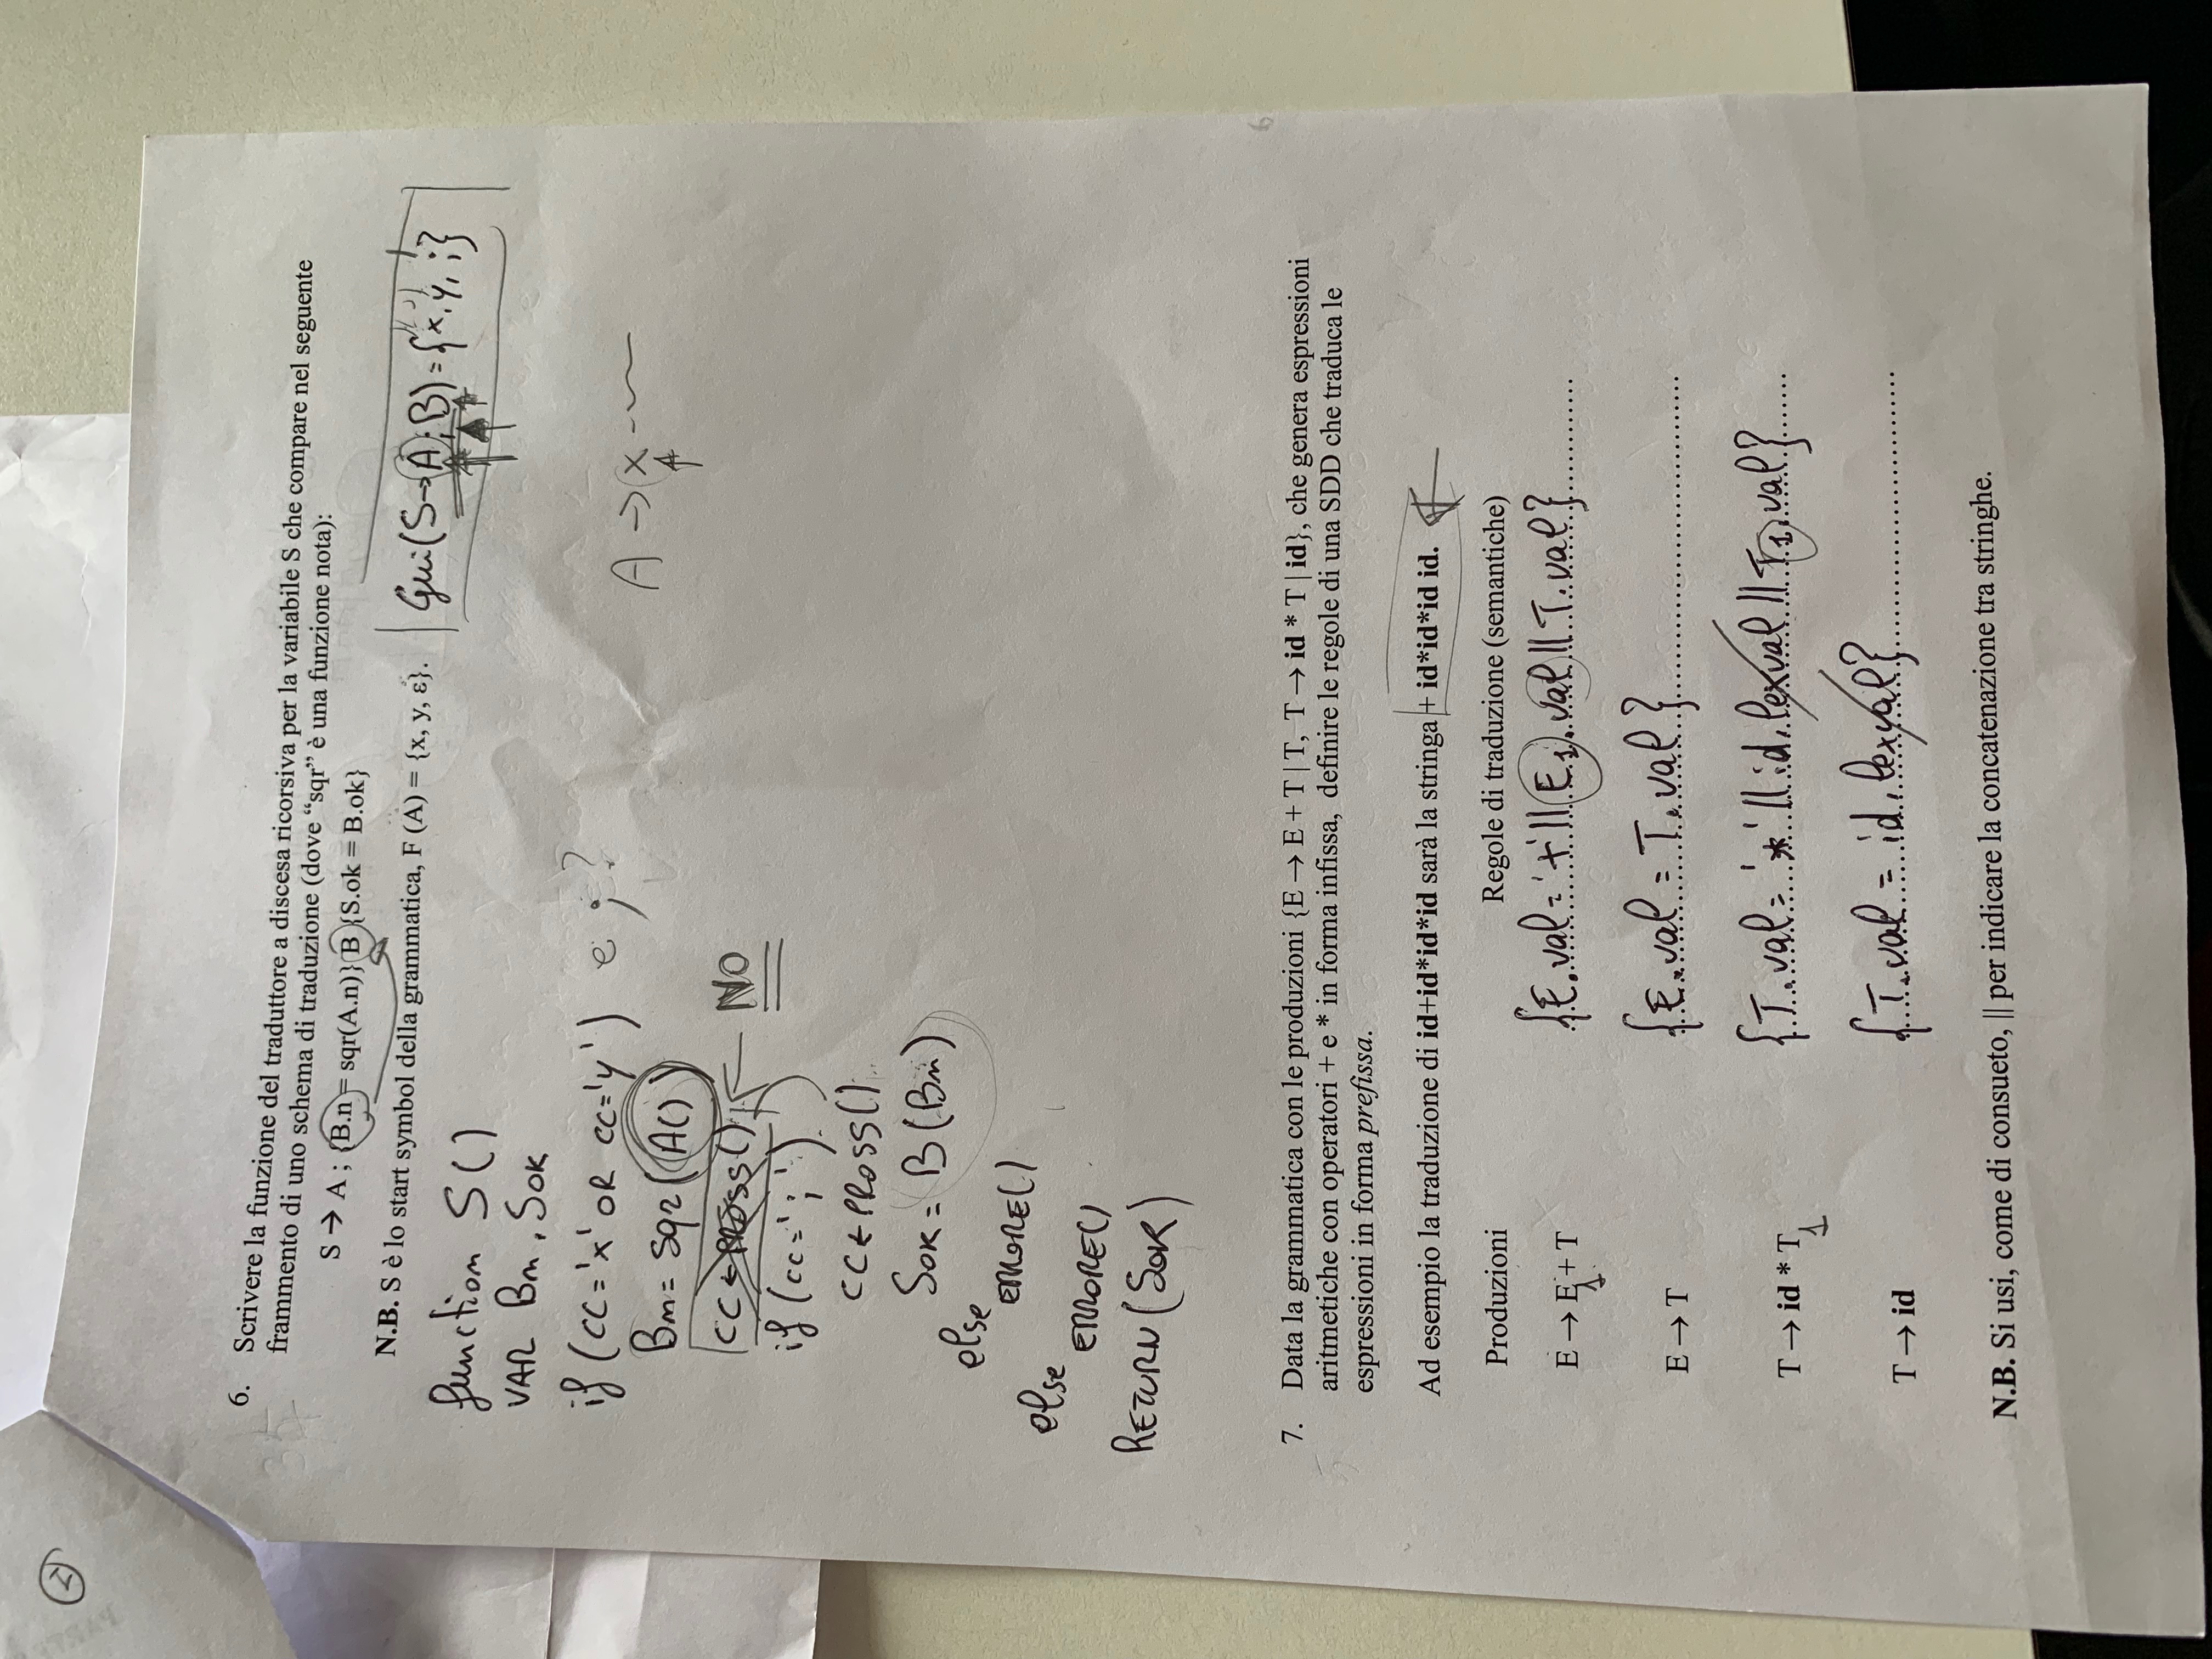 2
6. Scrivere la funzione del traduttore a discesa ricorsiva per la variabile S che compare nel seguente
frammento di uno schema di traduzione (dove “sqr” è una funzione nota):
S → A ; {B.n = sqr(A.n)} B {S.ok = B.ok}
N.B. S è lo start symbol della grammatica, F (A) = {x, y, ε}.
Gui(S→A;B)={x,y,;}
function S()
VAR Bn, SOK
if (CC='x' OR CC='y') e ;?
A → x
Bn = sqr(A())
CC ← PROSS() NO
if (cc=';')
CC ← PROSS()
SOK = B(Bn)
else
ERRORE()
else
ERRORE()
RETURN (SOK)
7. Data la grammatica con le produzioni {E → E + T | T, T → id * T | id}, che genera espressioni
aritmetiche con operatori + e * in forma infissa, definire le regole di una SDD che traduca le
espressioni in forma prefissa.
Ad esempio la traduzione di id+id*id*id sarà la stringa + id*id*id id.
Produzioni Regole di traduzione (semantiche)
E → E1 + T {E.val = '+' || E1.val || T.val}
E → T {E.val = T.val}
T → id * T1 {T.val = '*' || id.lexval || T1.val}
T → id {T.val = id.lexval}
N.B. Si usi, come di consueto, || per indicare la concatenazione tra stringhe.